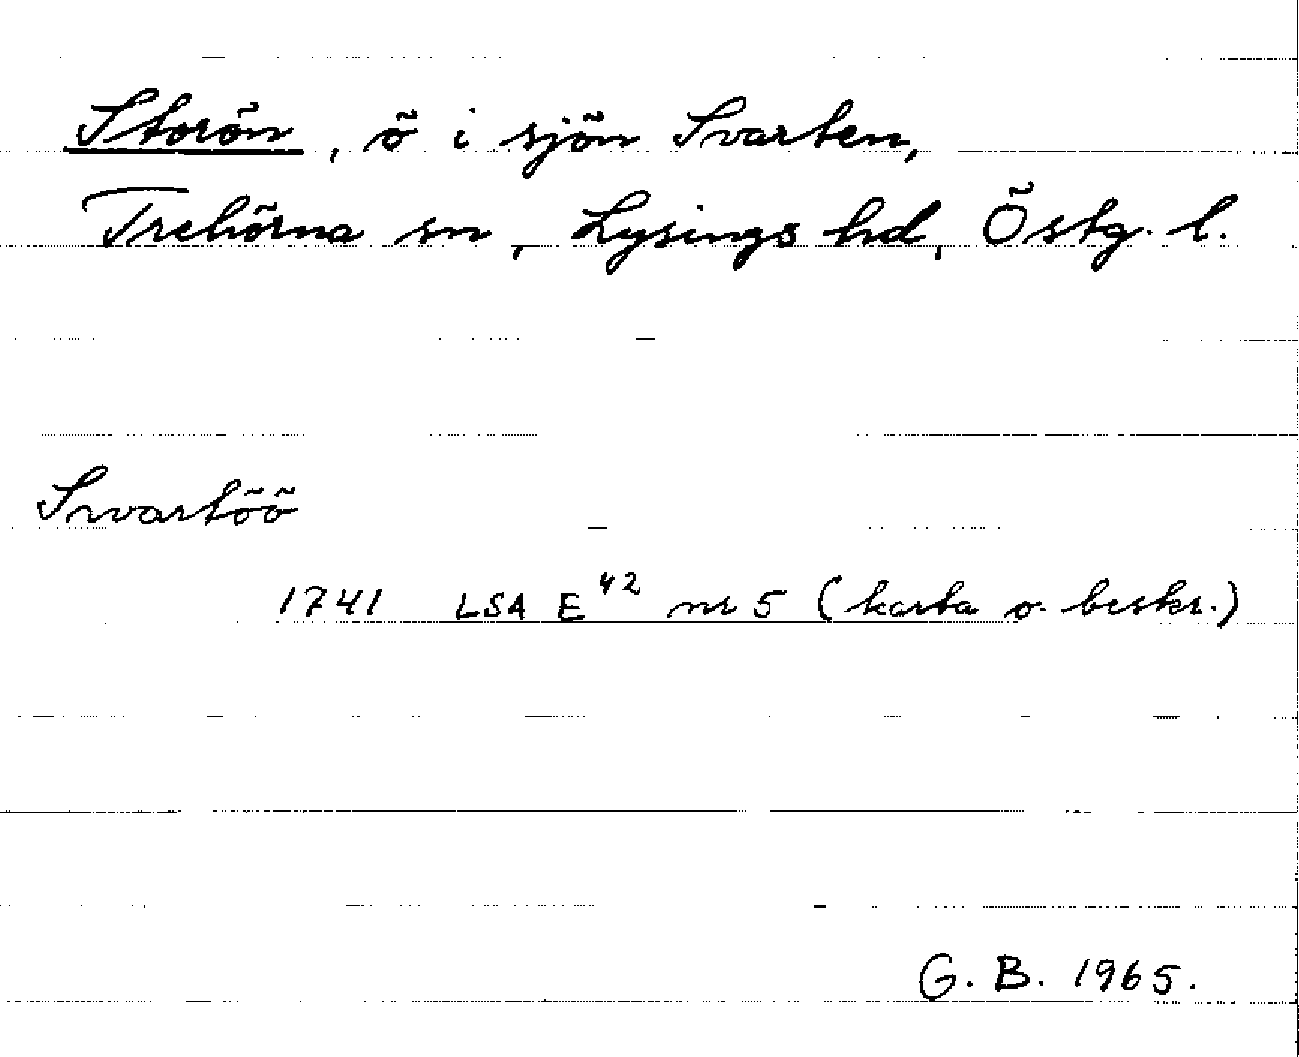 Storön, ö i sjön Svarten,
Trehörna sn, Lysings hd, Östg. l.
Swartöö
1741 LSA E 42 nr 5 (karta o. beskr.)
G. B. 1965.